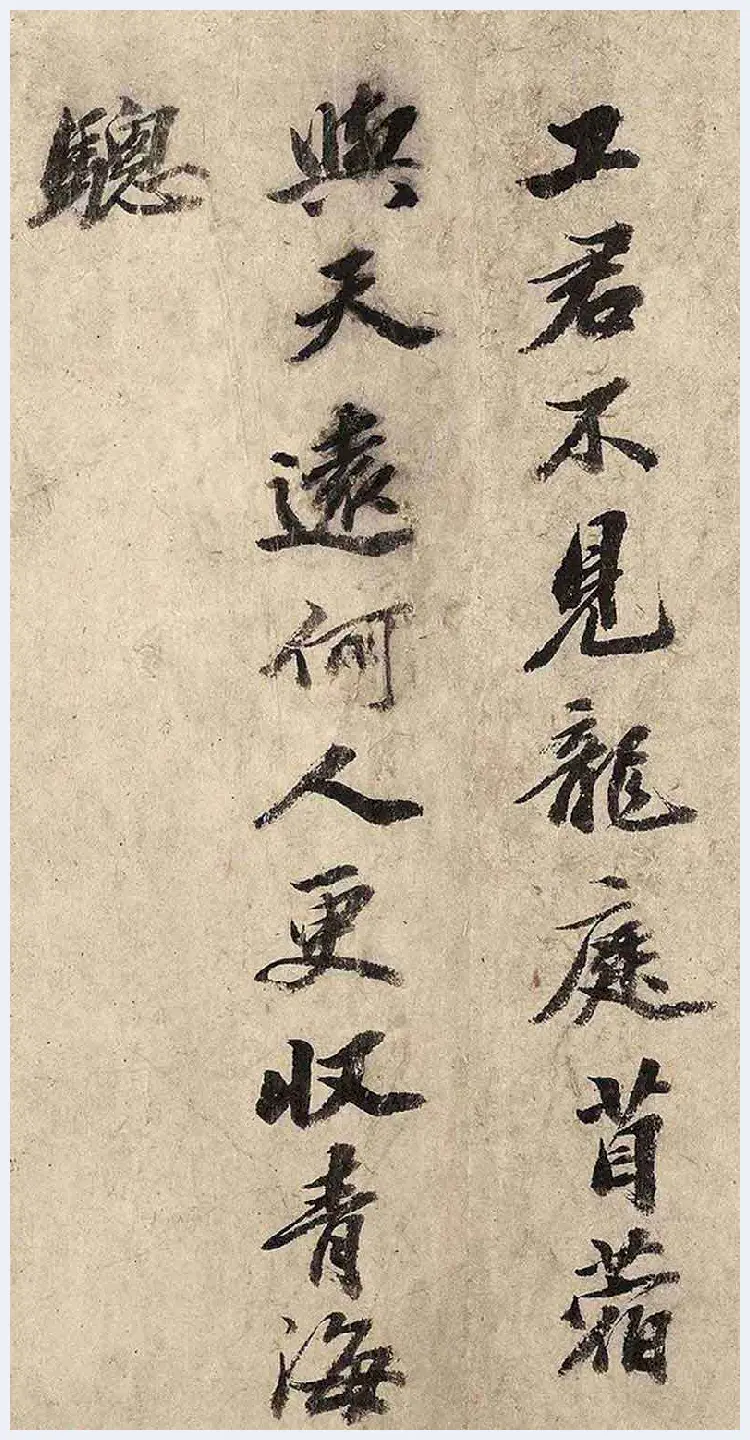 工君不見龍庭苜蓿
與天遠何人更収青海
驄